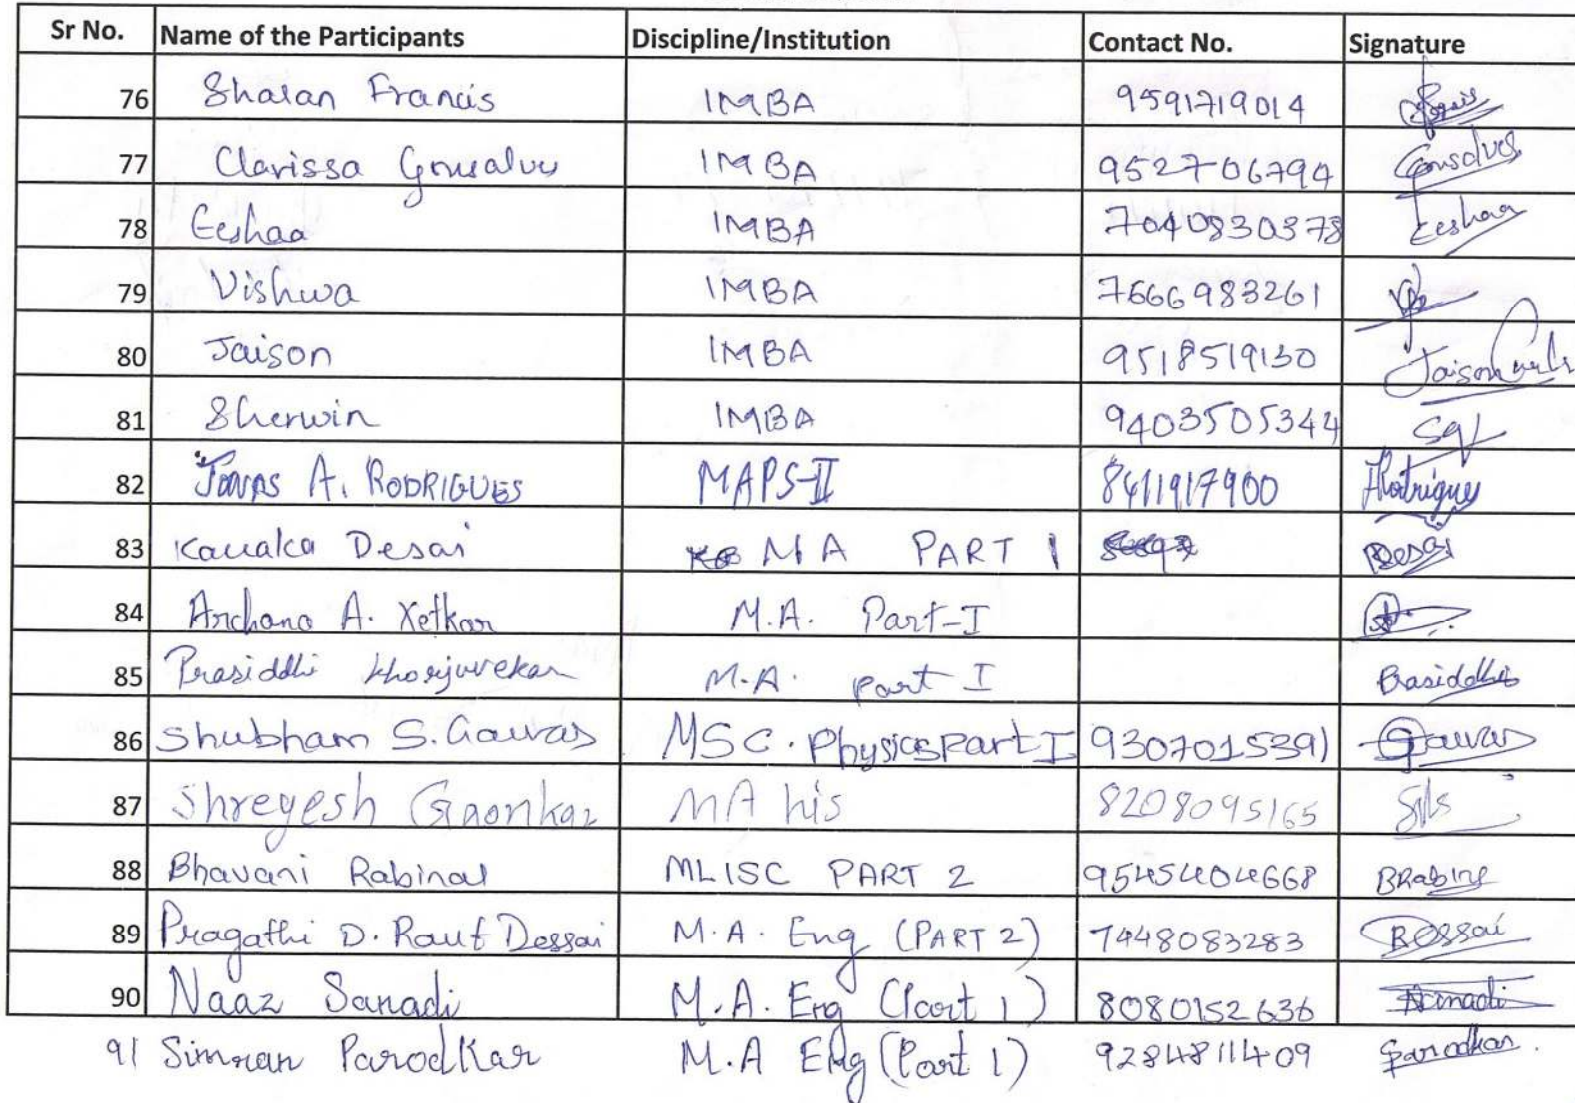 Sr No. Name of the Participants Discipline/Institution Contact No. Signature
76 Sharan Francis IMBA 9591719014
77 Clarissa Gonsalves IMBA 9527706794 Gonsalves
78 Eeshaa IMBA 7040830378 Eeshaa
79 Vishwa IMBA 7666983261
80 Jaison IMBA 9518519130 Jaison
81 Sherwin IMBA 9403505344
82 Jonas A. RODRIGUES MAPS-II 8411917900 Rodrigues
83 Kanaka Desai MA PART 1 Desai
84 Archana A. Xetkar M.A. Part-I
85 Prasiddhi Khorjuvekar M.A. Part I Prasiddhi
86 Shubham S. Gawas MSC. Physics Part I 9307015391 Gawas
87 Shreyesh Gaonkar MA his 8208095165
88 Bhavani Rabinal MLISC PART 2 9545404668 BRabinal
89 Pragathi D. Raut Dessai M.A. Eng (PART 2) 7448083283 Dessai
90 Naaz Sanadi M.A. Eng (Part 1) 8080152636 Sanadi
91 Simran Parodkar M.A Eng (Part 1) 9284811409 Parodkar.